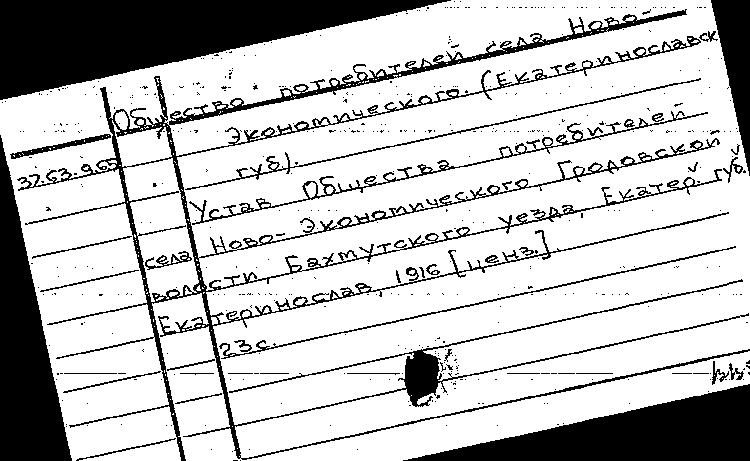 Общество потребителей села Ново-
Экономического. (Екатеринославск
губ).
37.63.9.65
Устав Общества потребителей
села Ново-Экономического, Гродовской
волости, Бахмутского уезда, Екатер. губ.
Екатеринослав, 1916 [ценз.].
23с.